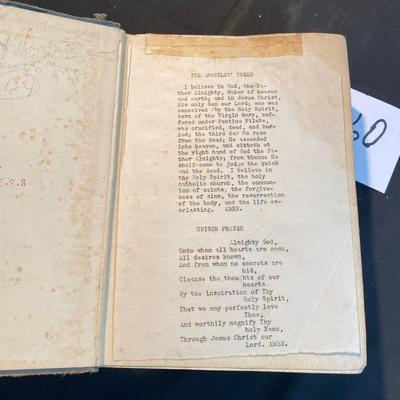 THE APOSTLES' CREED
I believe in God, the Fa-
ther Almighty, Maker of heaven
and earth; and in Jesus Christ,
his only Son our Lord; who was
conceived by the Holy Spirit,
born of the Virgin Mary, suf-
fered under Pontius Pilate,
was crucified, dead, and bur-
ied; the third day He rose
from the dead; He ascended
into heaven, and sitteth at
the right hand of God the Fa-
ther Almighty; from thence He
shall come to judge the quick
and the dead. I believe in
the Holy Spirit, the holy
catholic church, the commun-
ion of saints, the forgive-
ness of sins, the resurrection
of the body, and the life ev-
erlasting. AMEN.
UNISON PRAYER
Almighty God,
Unto whom all hearts are open,
All desires known,
And from whom no secrets are
hid,
Cleanse the thoughts of our
hearts
By the inspiration of Thy
Holy Spirit,
That we may perfectly love
Thee,
And worthily magnify Thy
holy Name,
Through Jesus Christ our
Lord. AMEN.
60